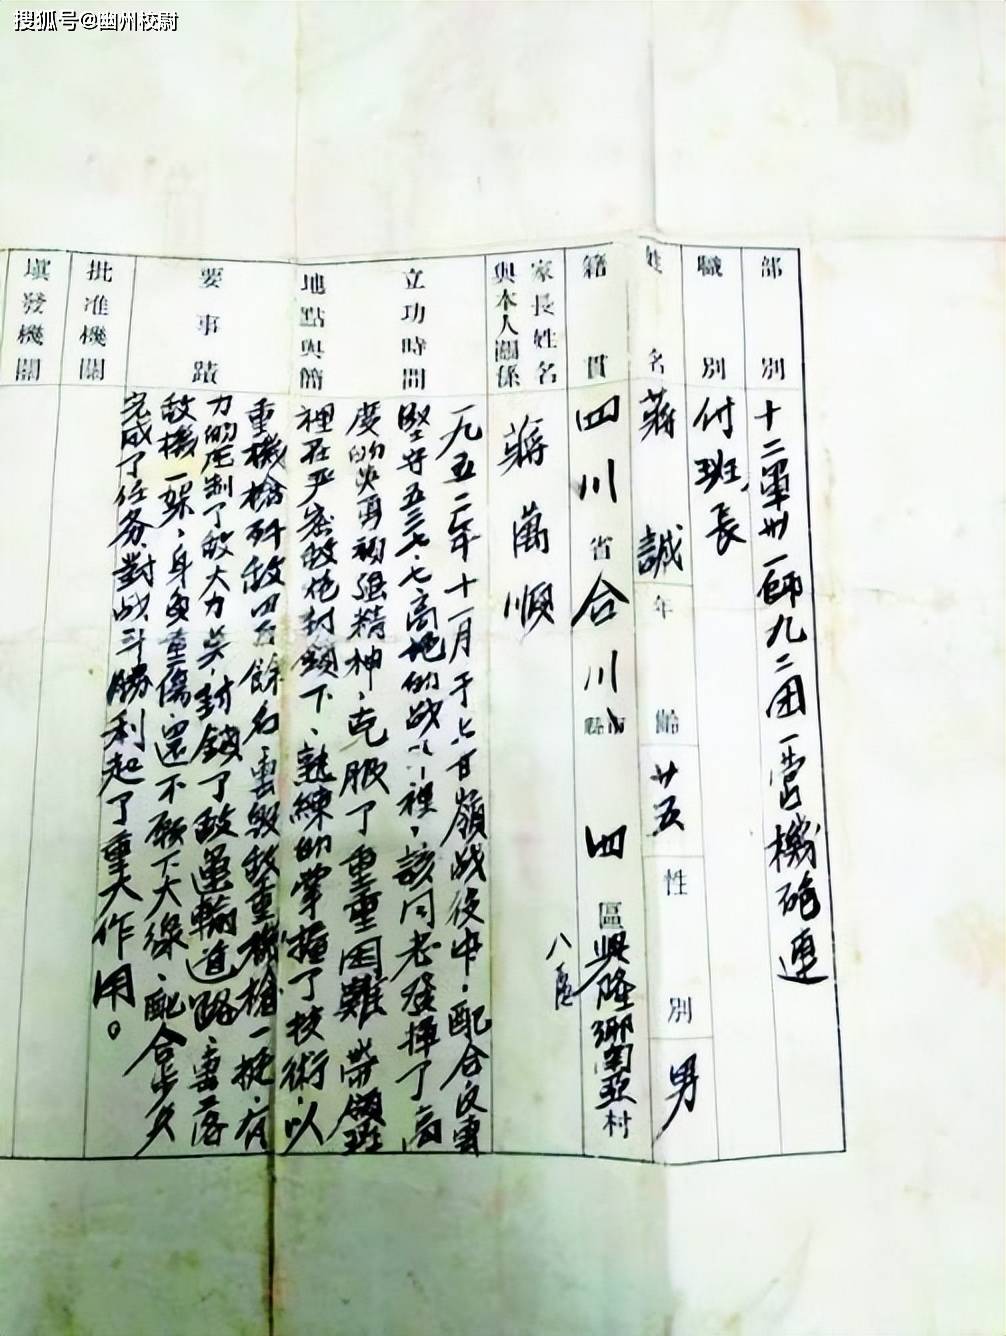 搜狐号@幽州校尉
部別 十二軍卅一師九二团一营機砲連
職別 付班長
姓名 蔣誠 年齡 廿五 性別 男
籍貫 四川省合川縣四區興隆鄉南亚村
八區
家長姓名
與本人關係 蔣萬順
立功時間
地點與簡
要事蹟
一九五二年十一月于上甘嶺战役中,配合反击
堅守五三七.七高地的战斗裡,該同志發揮了高
度的英勇頑强精神,克服了重重困難,带領班
裡在严密敌炮封鎖下、熟練的掌握了技術,以
重機槍歼敌四百餘名,击毁敌重機槍一挺,有
力的压制了敌火力点,封鎖了敌運輸道路,击落
敌機一架,身負重傷,還不願下火線,配合步兵
完成了任务,對战斗勝利起了重大作用。
批准機關
填發機關